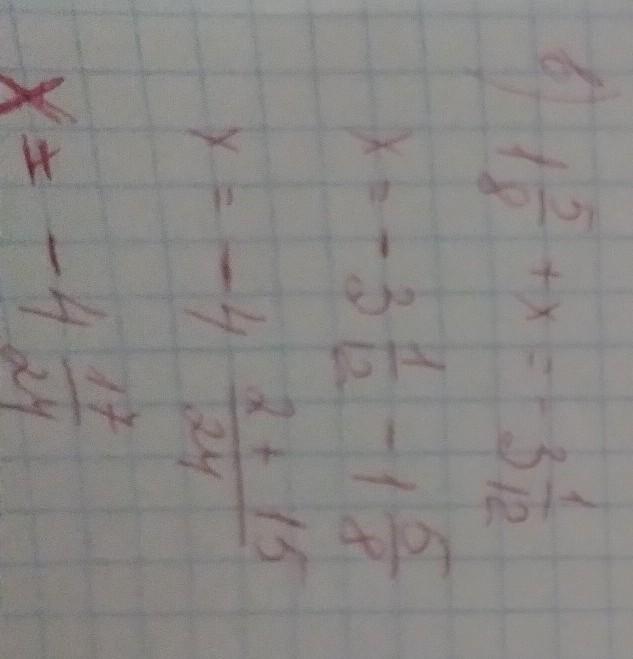 б) 1 5/8 + x = - 3 1/12
x = - 3 1/12 - 1 5/8
x = - 4 (2 + 15)/24
x = - 4 17/24